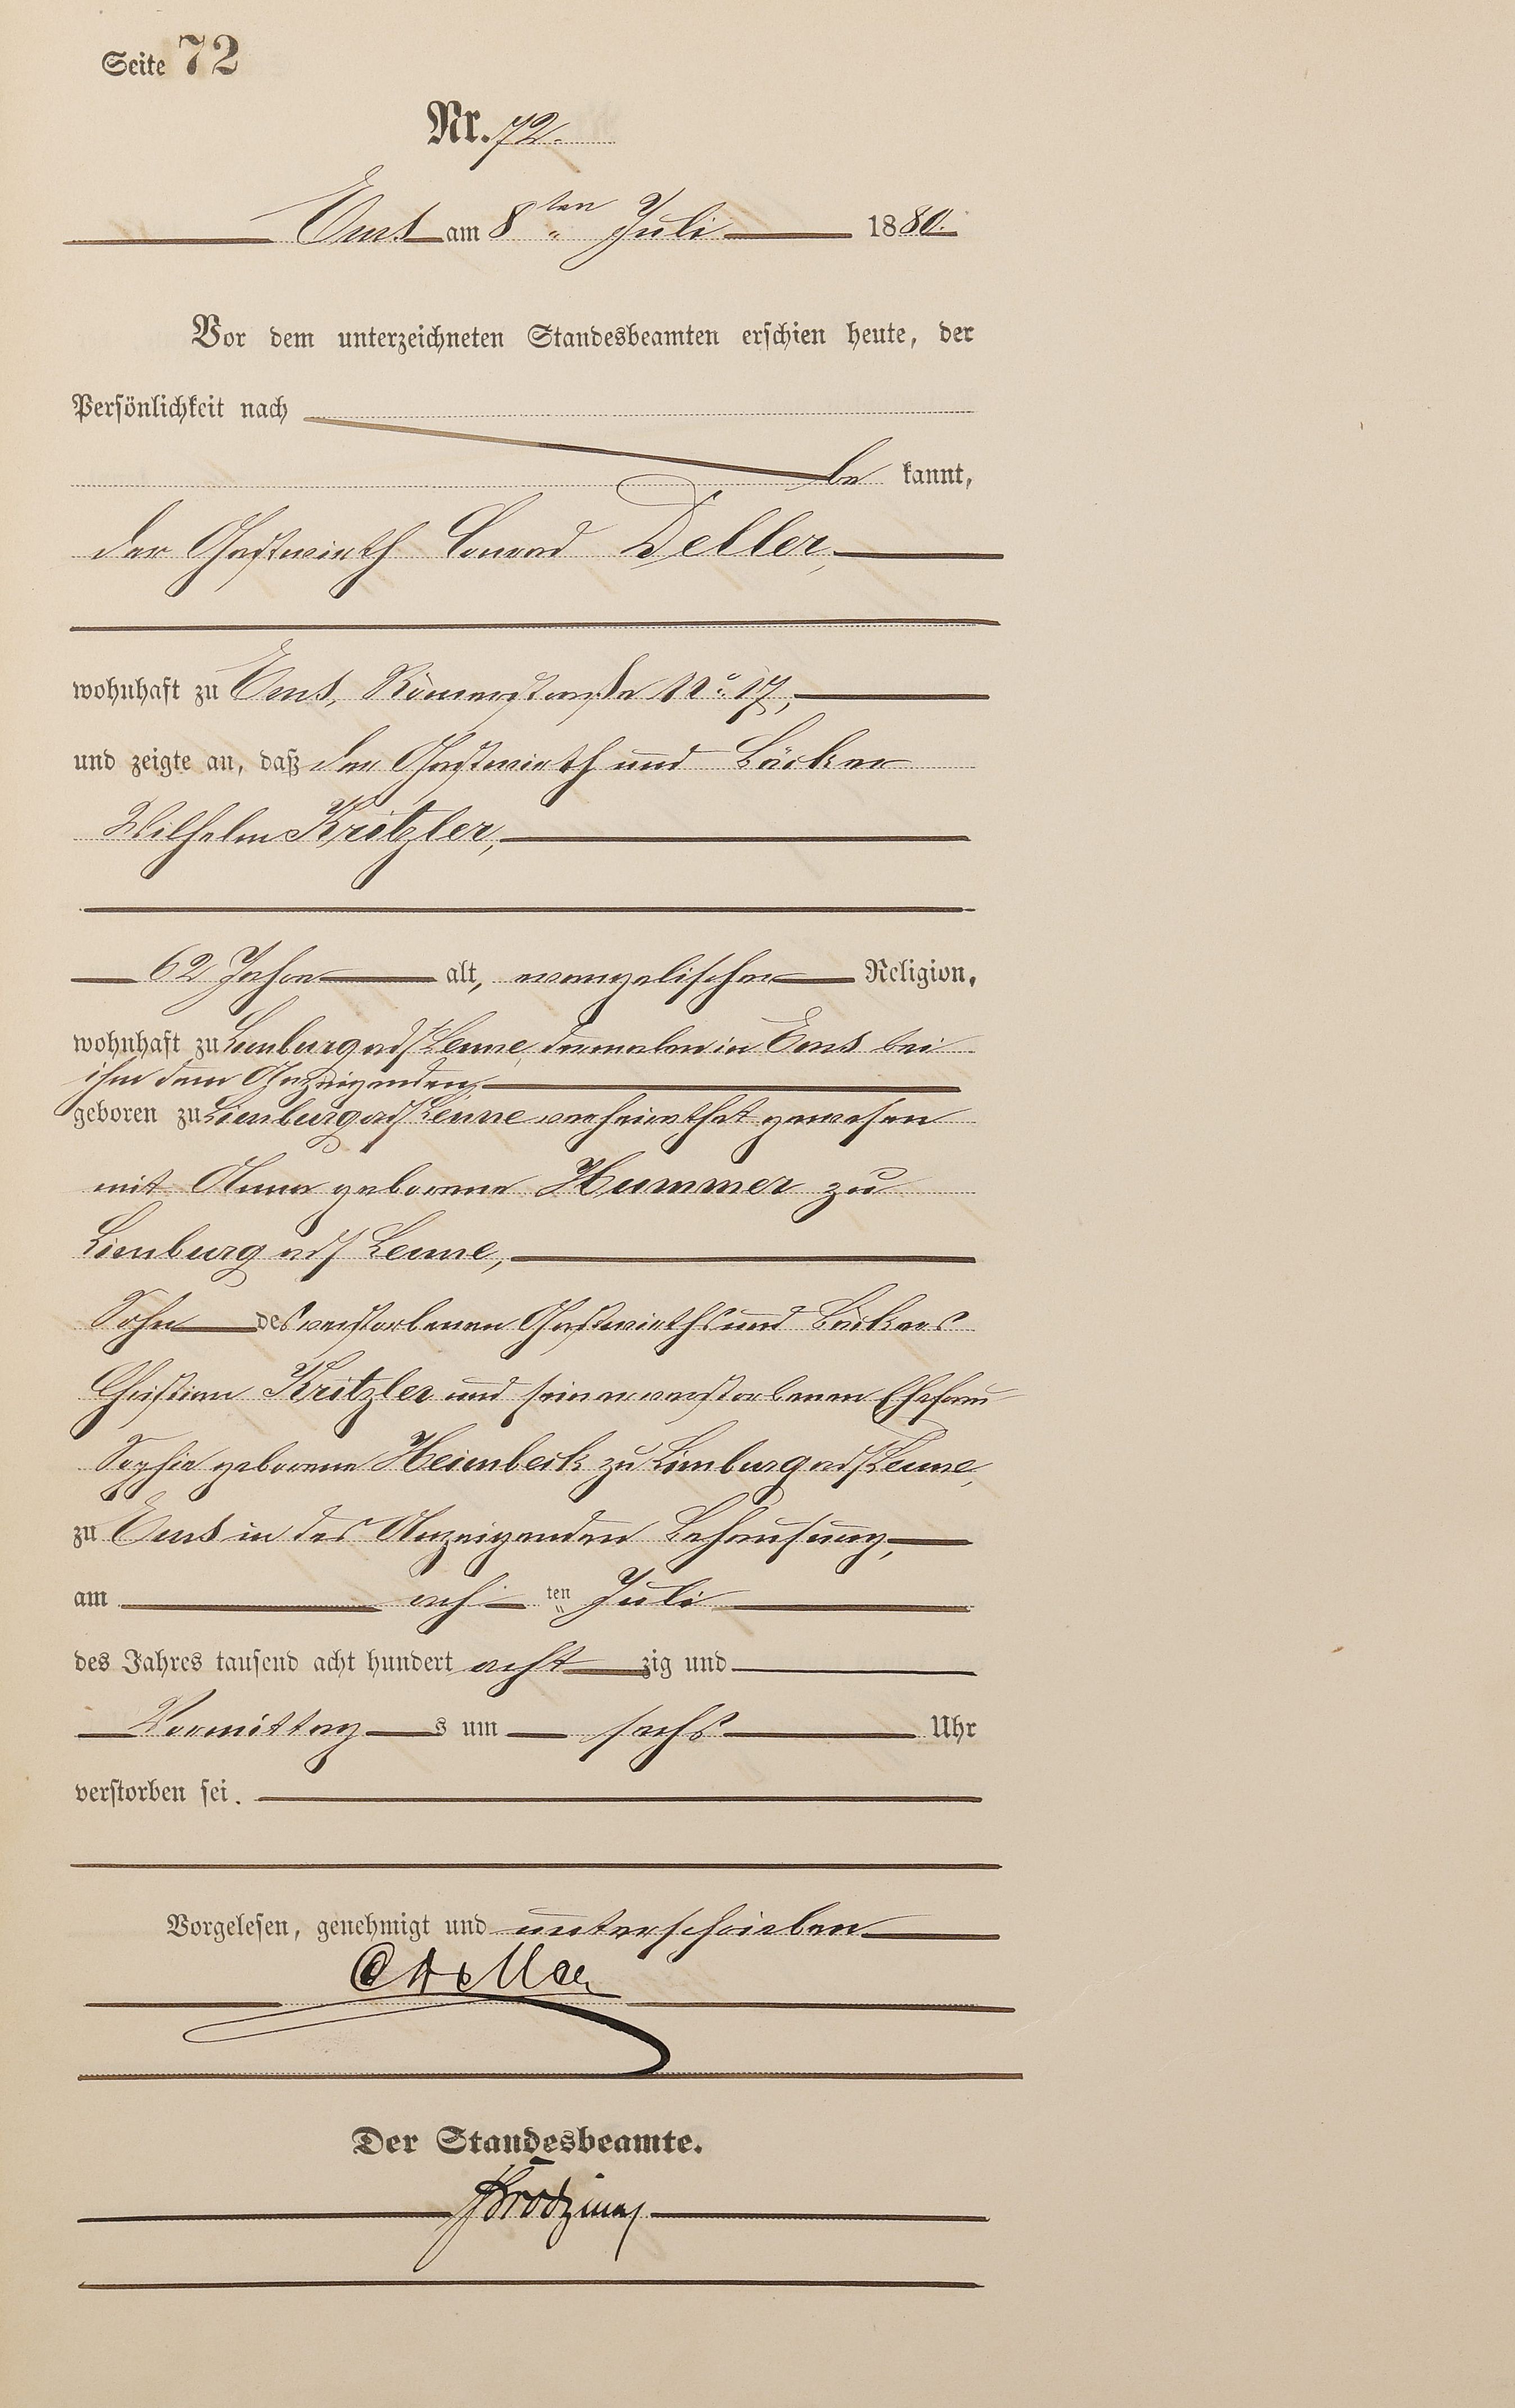 Seite 72
Nr. 72.
Ems am 8ten Juli 1880.
Vor dem unterzeichneten Standesbeamten erschien heute, der
Persönlichkeit nach
be kannt,
der Gastwirth Conrad Deller,
wohnhaft zu Ems, Römerstraße No. 17,
und zeigte an, daß der Gastwirth und Bäcker
Wilhelm Kritzler,
62 Jahre alt, evangelischer Religion,
wohnhaft zu Limburg a/d/ Lenne, dermalen in Ems bei
ihm dem Anzeigenden,
geboren zu Limburg a/d/ Lenne verheirathet gewesen
mit Anna geborene Hummer zu
Limburg a/d/ Lenne,
Sohn des verstorbenen Gastwirths und Bäckers
Christian Kritzler und seiner verstorbenen Ehefrau
Sophie geborene Heimbeck zu Limburg a/d/ Lenne,
zu Ems in des Anzeigenden Behausung,
am ach ten Juli
des Jahres tausend acht hundert acht zig und
Vormittag s um sechs Uhr
verstorben sei.
Vorgelesen, genehmigt und unterschrieben
C Deller
Der Standesbeamte.